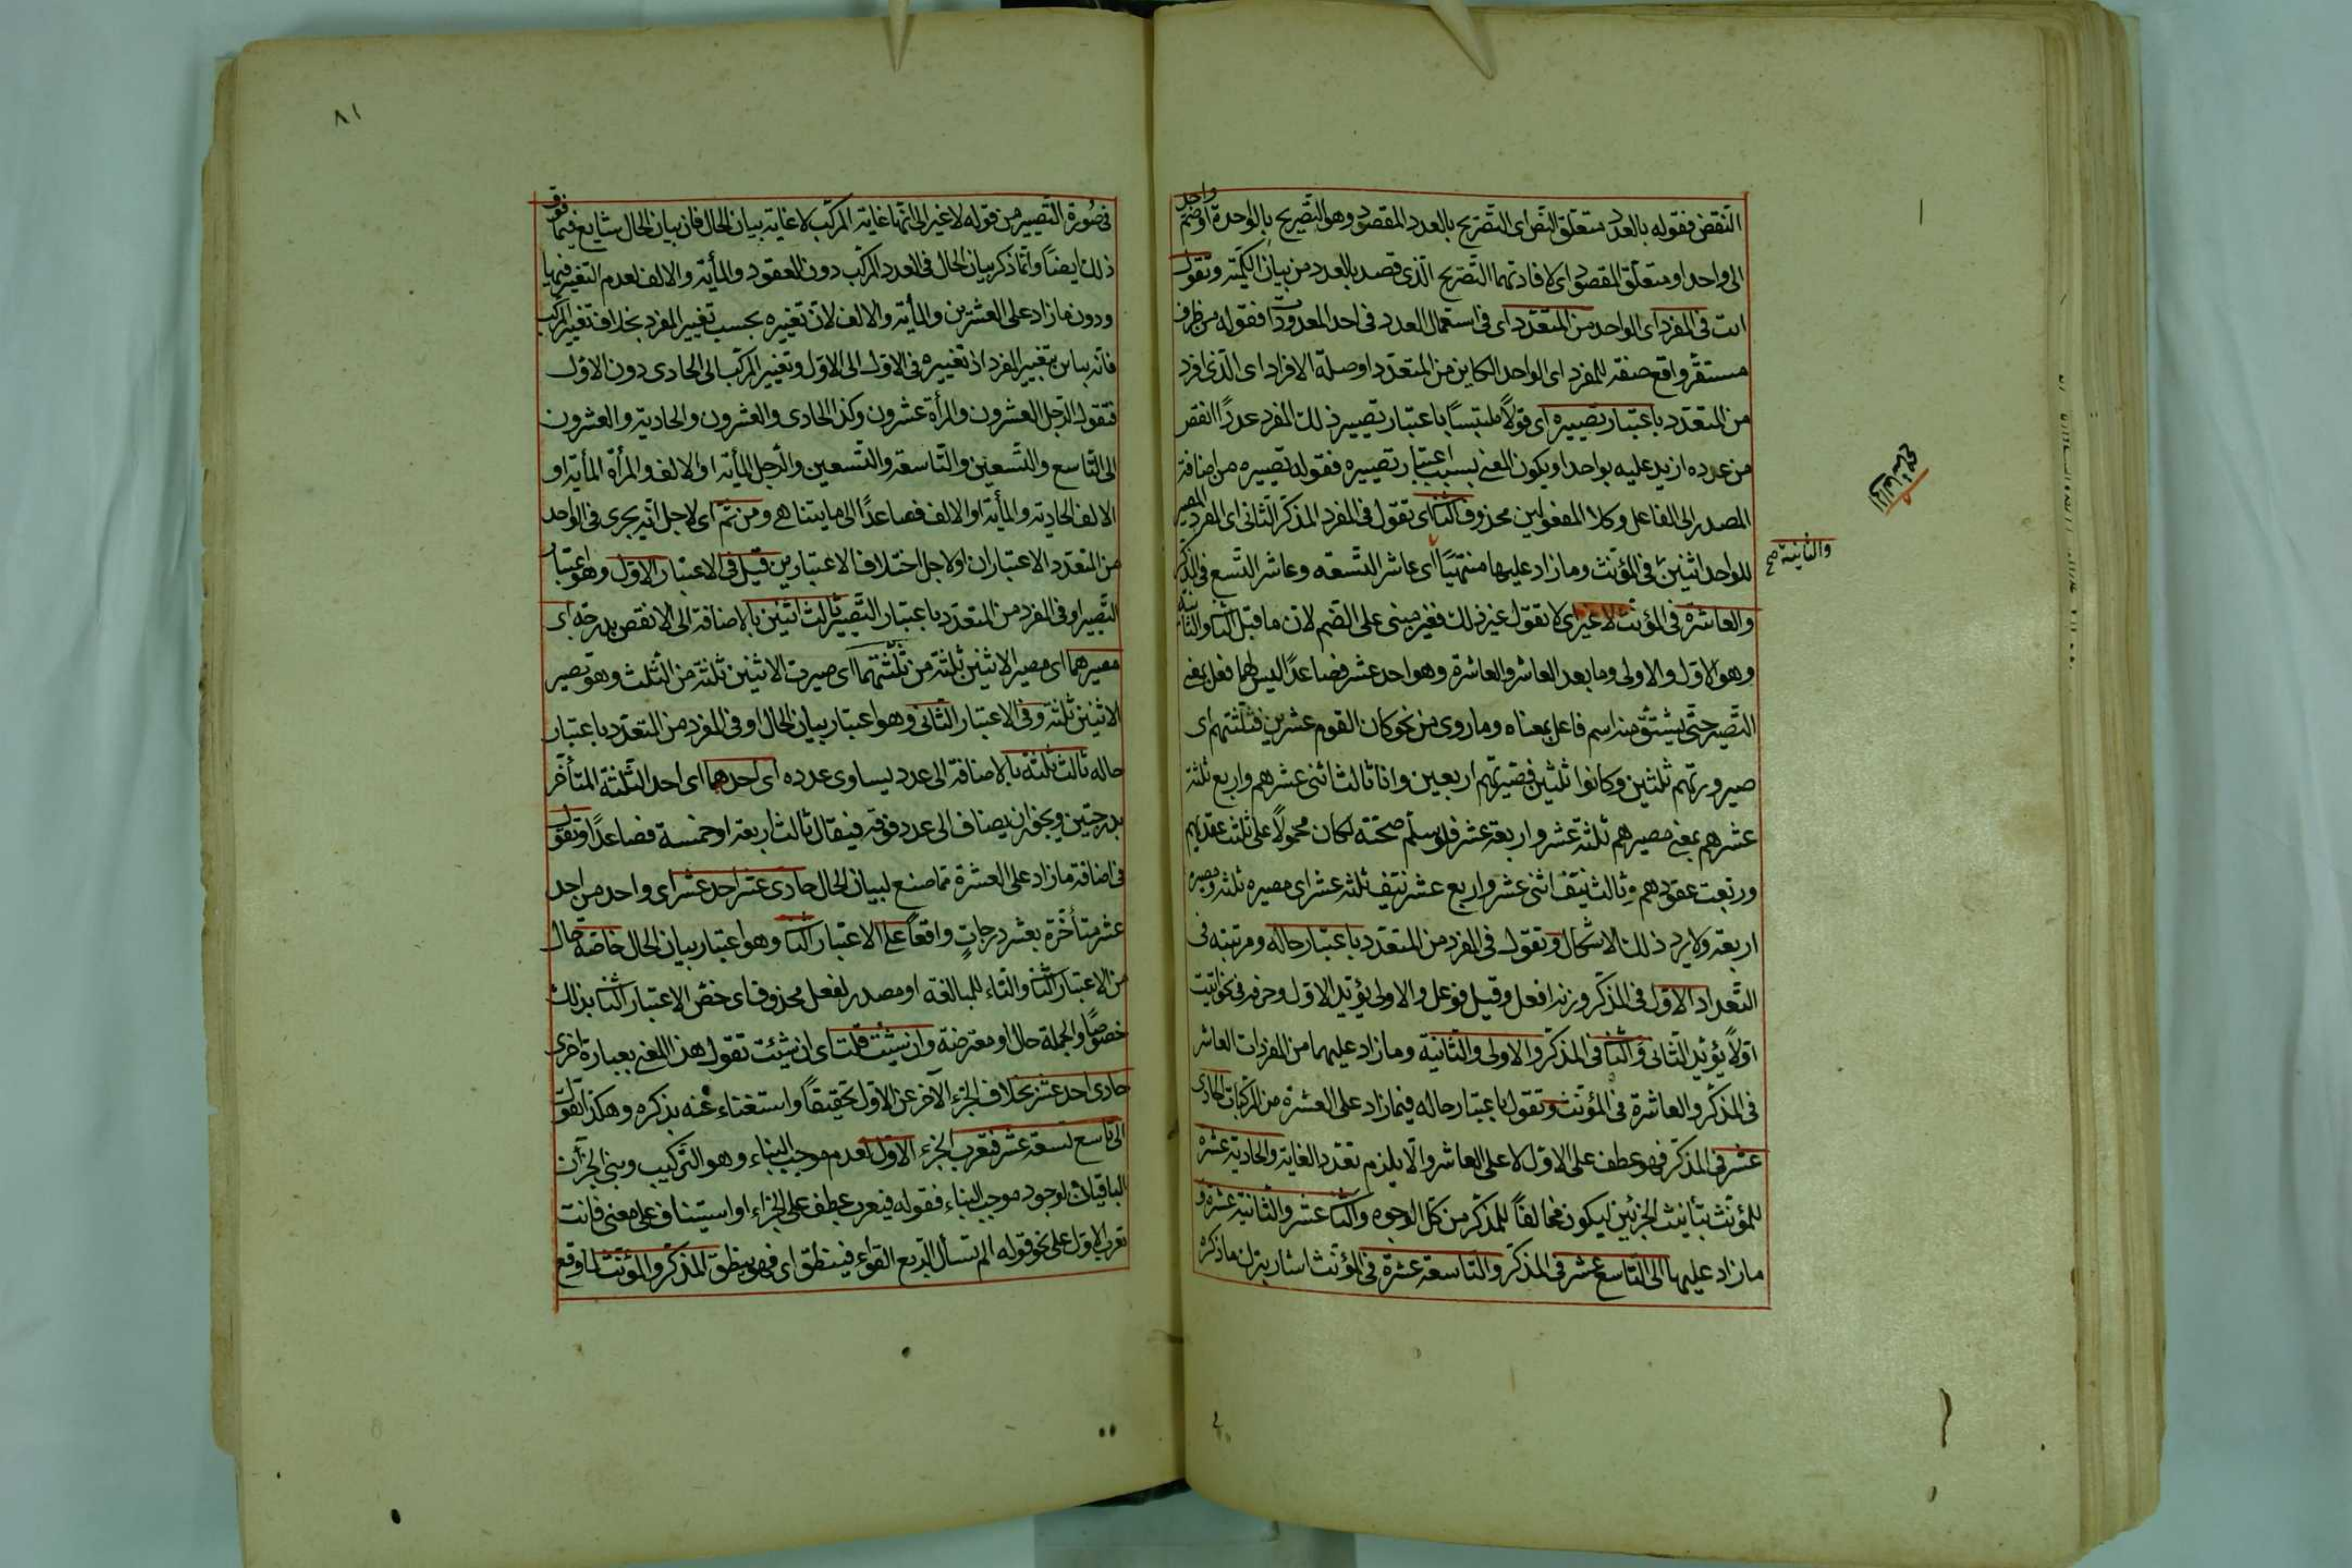 النقض فقوله بالعدد متعلق النص اى التصريح بالعدد المقصود وهو التصريح بالواحدة او ضم واحد
الى واحد او متعلق المقصود اى لافادتهما التصريح الذى قصد بالعدد من بيان الكمية وتقول
انت فى المفرد اى الواحد من المتعدد اى فى استعمال العدد فى احد المعدودات فقوله من ظرف
مستقر واقع صفة للمفرد اى الواحد الكاين من المتعدد او صلة الافراد اى الذى افرد
من المتعدد باعتبار تصييره اى قولاً ملتبسًا باعتبار تصيير ذلك المفرد عددًا انقص
من عدده ازيد عليه بواحد او يكون المعنى بسبب اعتبار تصييره فقوله تصييره من اضافة
المصدر الى الفاعل وكلا المفعولين محذوف الثانى اى تقول فى المفرد المذكر الثانى اى المفرد المصير
للواحد اثنين فى المؤنث وما زاد عليها منتهيًا الى عاشر التسعة وعاشر التسع فى المذكر
والثانية صح
والعاشرة فى المؤنث لا غير اى لا تقول غير ذلك فغير مبنى على الضم لان ما قبل الثانى والثانية
وهو الاول والاولى وما بعد العاشر والعاشرة وهو احد عشر فصاعدًا ليس لهما فعل بمعنى
التصيير حتى يشتق منه اسم فاعل بمعناه وما روى من نحو كان القوم عشرين فثلثتهم اى
صيرورتهم ثلثين وكانوا ثلثين فصيرتهم اربعين وانا ثالث اثنى عشرهم واربع ثلثة
عشرهم بمعنى مصيرهم ثلثة عشر واربعة عشر فلو سلم صحته لكان محمولاً على ثلثت عقدهم
وربعت عقودهم وثالث نيف اثنى عشر واربع عشر نتيف ثلثة عشر اى مصيره ثلثة ومصيره
اربعة ولا يرد ذلك الاشكال وتقول فى المفرد من المتعدد باعتبار حاله ومرتبته فى
التعداد الاول فى المذكر وزنه افعل وقيل فوعل والاولى يؤيد الاول وحرفه فى نحو اتيت
اولاً يؤيد الثانى والثانى فى المذكر والاولى والثانية وما زاد عليهما من المفردات العاشر
فى المذكر والعاشرة فى المؤنث وتقول باعتبار حاله فيما زاد على العشرة من المركبات الحادى
عشر فى المذكر فهو عطف على الاول لا على العاشر والا يلزم تعدد الغاية والحادية عشرة
للمؤنث بتأنيث الجزئين ليكون مخالفًا للمذكر من كل الوجوه والثانى عشر والثانية عشرة و
ما زاد عليها الى التاسع عشر فى المذكر والتاسعة عشرة فى المؤنث اشار بترك ما ذكره
٨١
فى صورة التصيير من قوله لا غير الى انها غاية المركب لا غاية بيان الحال فان بيان الحال شايع فيما فوق
ذلك ايضًا وانما ذكر بيان الحال فى العدد المركب دون العقود والمأية والالف لعدم التغيير فيها
ودون ما زاد على العشرين والمأية والالف لان تغييره بحسب تغيير المفرد بخلاف تغيير المركب
فانه يباين بتغيير المفرد اذ تغييره فى الاول الى الاول وتغيير المركب الى الحادى دون الاول
فتقول الرجل العشرون والمرأة عشرون وكذا الحادى والعشرون والحادية والعشرون
الى التاسع والتسعين والتاسعة والتسعين والرجل المأية او الالف والمرأة المأية او
الالف الحادية والمأية او الالف فصاعدًا الى ما يتناهى ومن ثم اى لاجل انه يجرى فى الواحد
من المتعدد الاعتباران او لاجل اختلاف الاعتبارين قيل فى الاعتبار الاول وهو اعتبار
التصيير او فى المفرد من المتعدد باعتبار التصيير ثالث اثنين بالاضافة الى الانقص بدرجة اى
مصيرهما اى مصير الاثنين ثلثة من ثلثتهما اى صيرت الاثنين ثلثة من الثلث وهو تصيير
الاثنين ثلثة وفى الاعتبار الثانى وهو اعتبار بيان الحال او فى المفرد من المتعدد باعتبار
حاله ثالث ثلثة بالاضافة الى عدد يساوى عدده اى احدهما اى احد الثلثة المتأخر
بدرجتين ويجوز ان يضاف الى عدد فوقه فيقال ثالث اربعة او خمسة فصاعدًا وتقول
فى اضافة ما زاد على العشرة مما صنع لبيان الحال حادى عشر احد عشر اى واحد من احد
عشر متأخرة بعشر درجات واقعًا على الاعتبار الثانى وهو اعتبار بيان الحال خاصة حال
من الاعتبار الثانى والتاء للمبالغة او مصدر لفعل محذوف اى خص الاعتبار الثانى بذلك
خصوصًا والجملة حال او معترضة وان شئت قلت اى ان شئت تقول هذا المعنى بعبارة اخرى
حادى احد عشر بحذف الجزء الآخر عن الاول تخفيفًا واستغناء عنه بذكره وهكذا تقول
الى تاسع تسعة عشر فتعرب الجزء الاول لعدم موجب البناء وهو التركيب وبنى الجزآن
الباقيان لوجود موجب البناء فقوله فيعرب عطف على الجزاء او استيناف على معنى فانت
تعرب الاول على نحو قوله الم تسأل الربع القواء فينطق اى فهو ينطق المذكر والمؤنث لما وقع